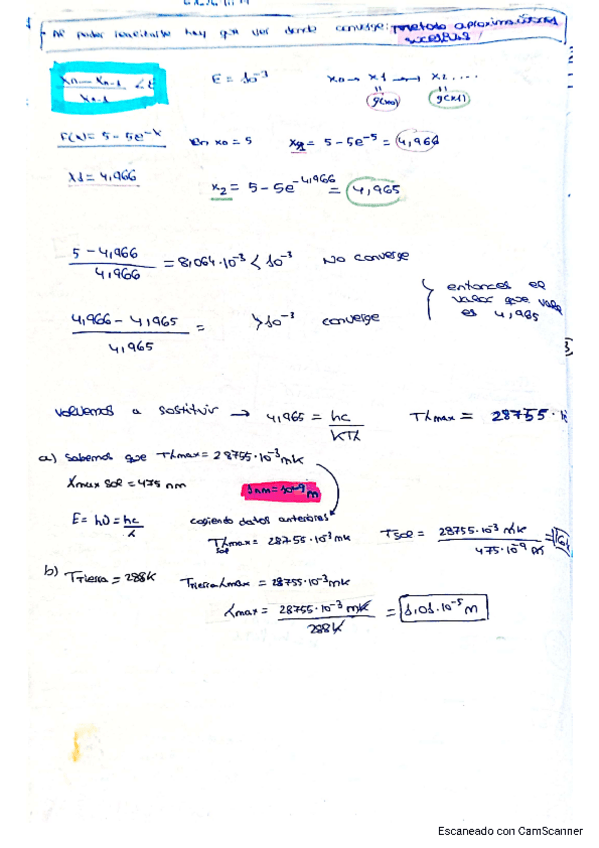 Al poder linealitarse hay que ver donde converge: método aproximaciones sucesivas
xn - xn-1 / xn-1 < ε
E = 10⁻³
x0 → x1 → x2 ....
g(x0) g(x1)
F(x) = 5 - 5e⁻ˣ en x0 = 5 x1 = 5 - 5e⁻⁵ = 4,966
x1 = 4,966
x2 = 5 - 5e⁻⁴'⁹⁶⁶ = 4,965
5 - 4,966 / 4,966 = 8,064·10⁻³ < 10⁻³ No converge
4,966 - 4,965 / 4,965 = > 10⁻³ converge
entonces el
valor que vale
es 4,965
volvemos a sostituir → 4,965 = hc / KTλ Tλmax = 28755·
a) sabemos que Tλmax = 28755·10⁻³ mk
λmax sol = 475 nm
1 nm = 10⁻⁹ m
E = hν = hc / λ cogiendo datos anteriores
Tsol λmax = 28755·10⁻³ mk Tsol = 28755·10⁻³ mk / 475·10⁻⁹ m =
b) Ttierra = 288K Ttierra λmax = 28755·10⁻³ mk
λmax = 28755·10⁻³ mk / 288k = 1,01·10⁻⁵ m
Escaneado con CamScanner